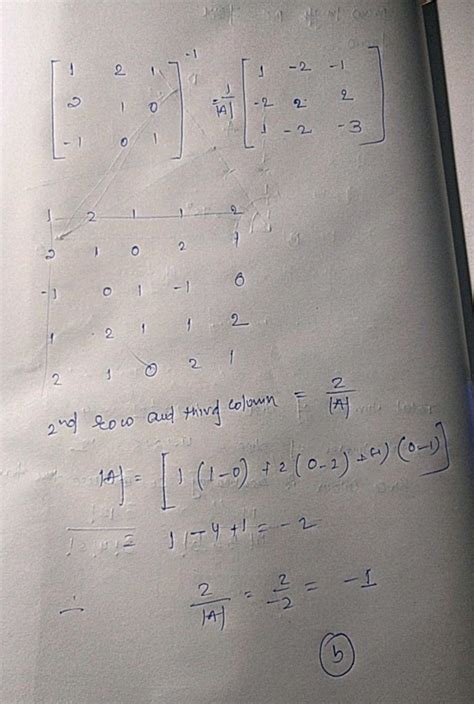 [ 1 2 1 ]⁻¹ [ 1 -2 -1 ]
[ 2 1 0 ] = 1/|A| [ -2 2 2 ]
[ -1 0 1 ] [ 1 -2 -3 ]
1 2 1 1 2
2 1 0 2 1
-1 0 1 -1 0
1 2 1 1 2
2 1 0 2 1
2nd row and third colown = 2/|A|
|A| = [ 1 (1-0) + 2 (0-2) + (-1) (0-1) ]
= 1 - 4 + 1 = -2
∴ 2/|A| = 2/-2 = -1
b